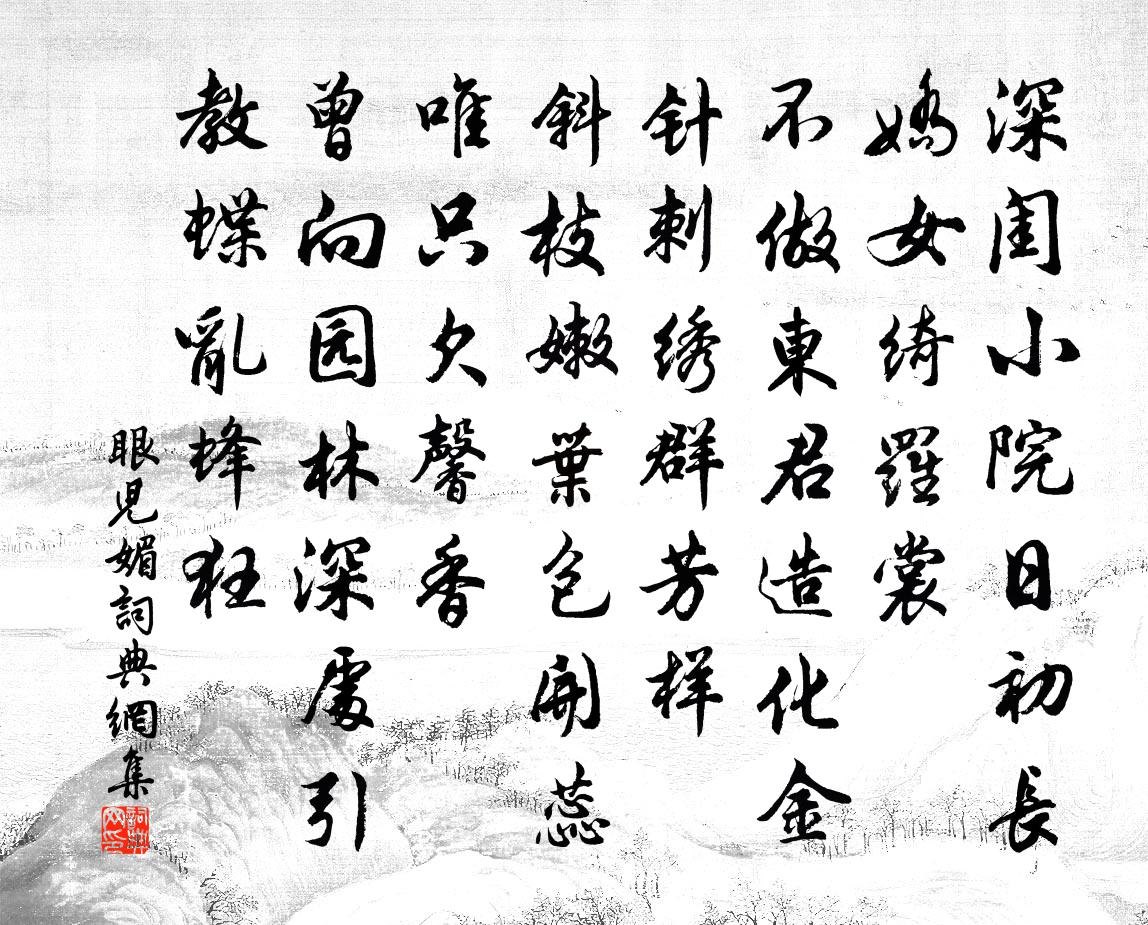 深闺小院日初長
嬌女绮羅裳
不做東君造化金
针刺绣群芳样
斜枝嫩葉包開蕊
唯只欠馨香
曾向园林深處引
教蝶亂蜂狂
眼児媚詞典網集
詞典
网印